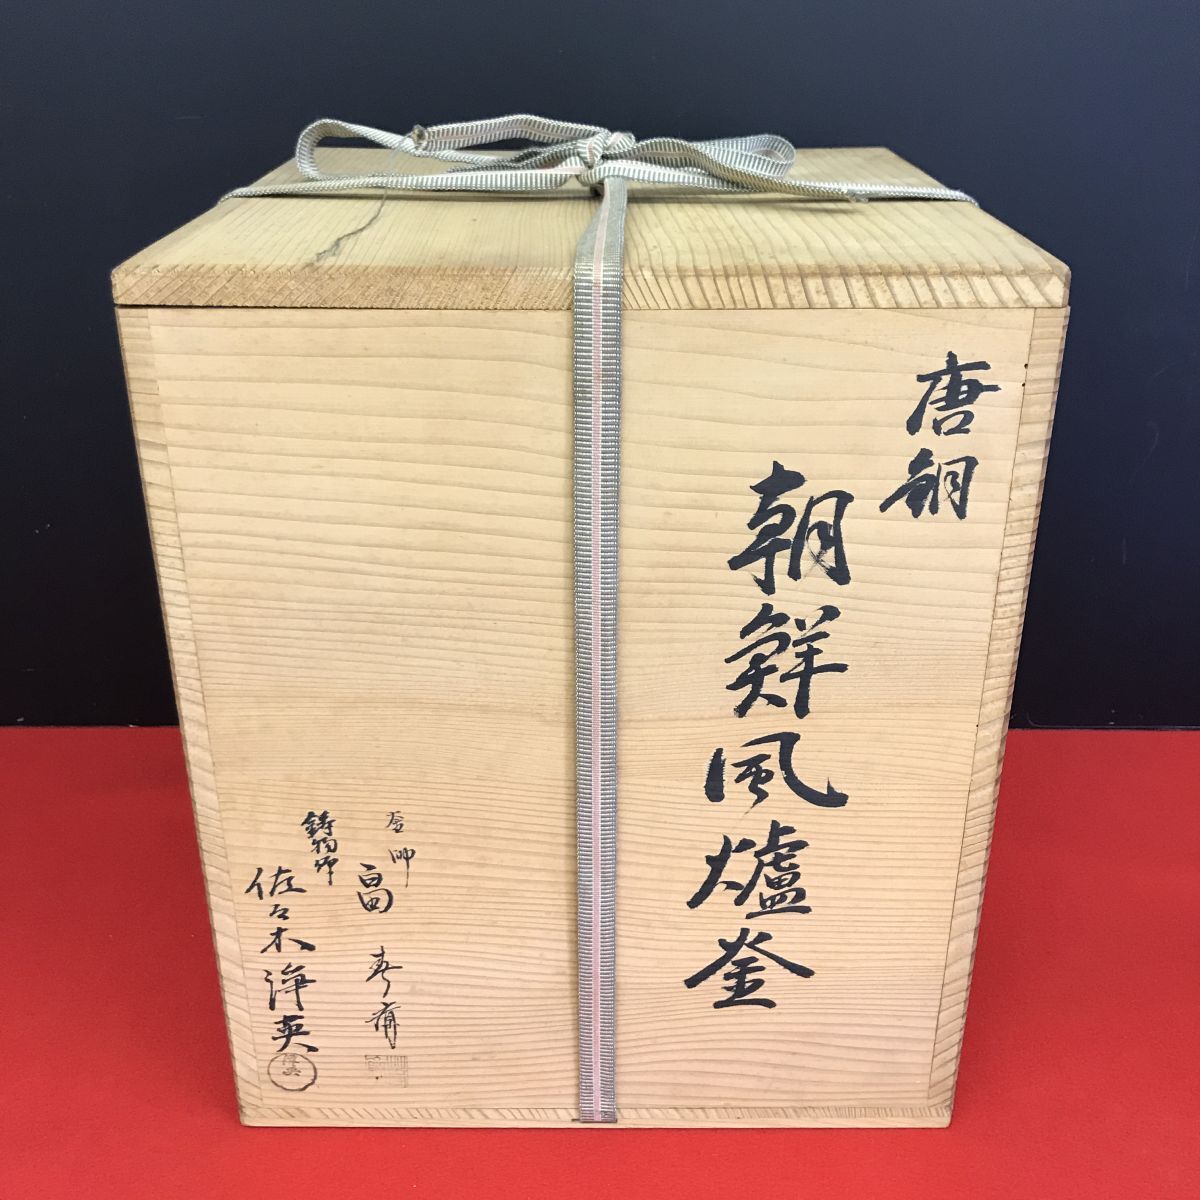 唐銅
朝鮮風爐釜
釜師
畠春斎
鋳物師
佐々木浄英